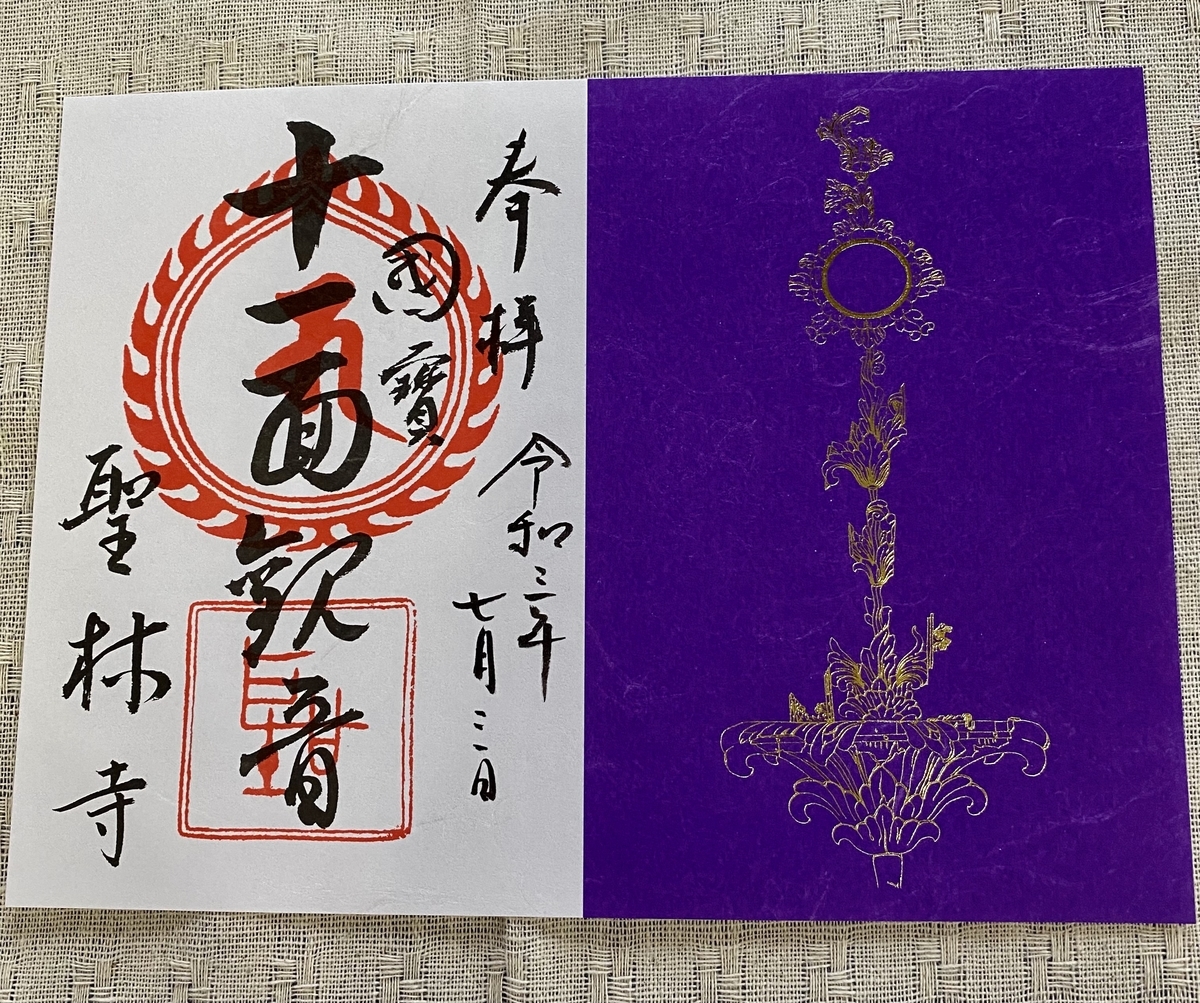 奉拝 令和三年
七月三日
國寶
十一面観音
聖林寺